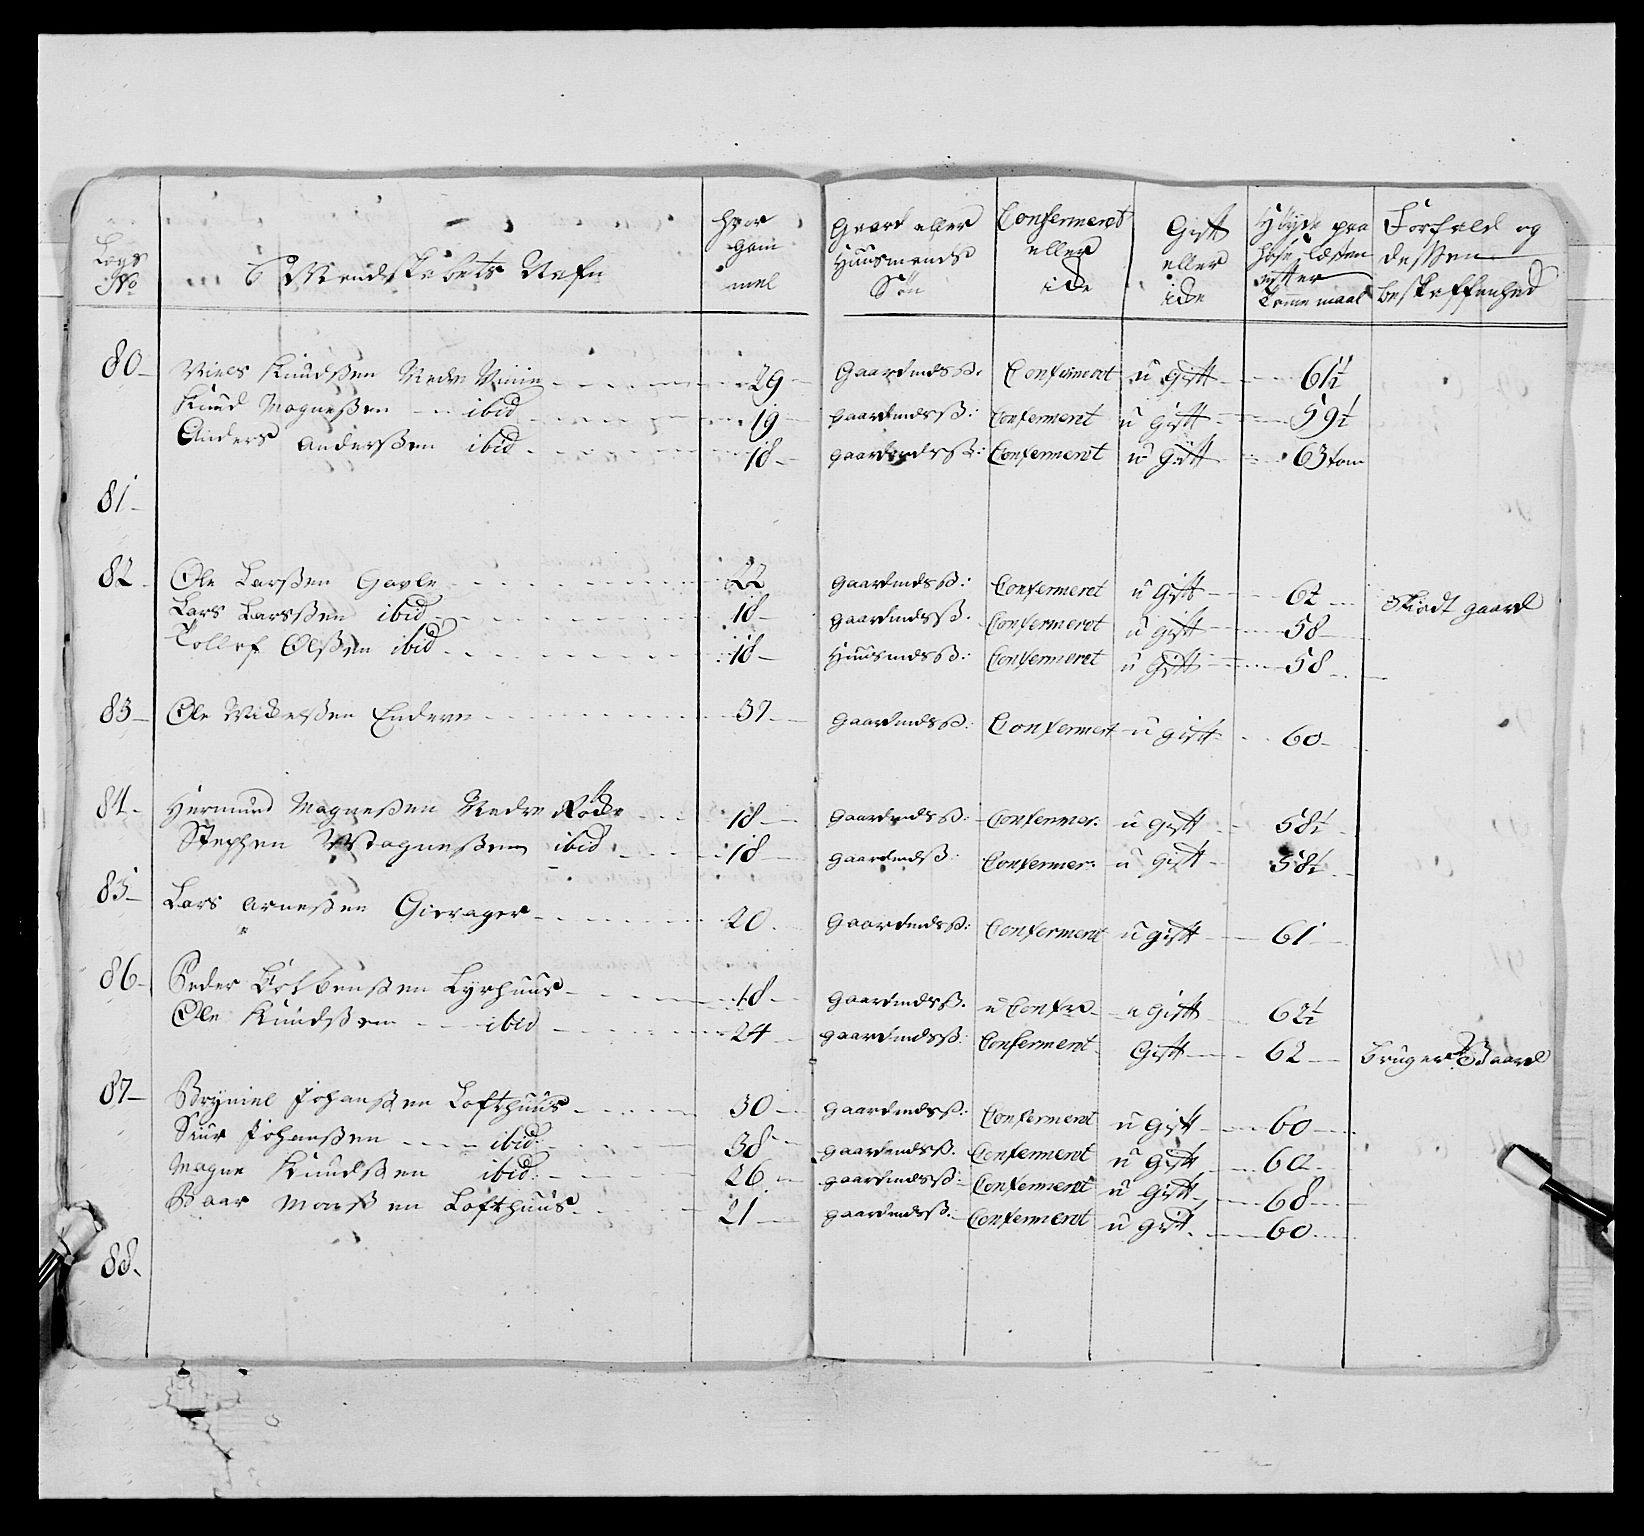 Lægs No | Mandskabets Nafn | hvor gam mel | Gaard eller Huusmends Søn | Confermeret eller ide | Gift eller ide | Høyde paa hose læsten efter Tomme maal | Forfald og dessen beskaffenhed
80 Niels Knudssen Nedre 29 Gaardmdsß: Conferment u Gift 61½
Knud Magnessen ibid 19 gaardmdsß: Conferment u gift 59½
Anders Anderssen ibid 18 gaardmdsß: Confermeret u gift 63 tom
81
82 Ole Larssen Gavle 22 gaardmdsß: Confermeret u gift 62 gaard
Lars Larssen ibid 18 gaardmdsß: Confermeret u gift 58
Tollef Olssen ibid 18 Huusmdsß: Confermeret u gift 58
83 Ole Endere 37 gaardmdsß: Conferment u gift 60
84 Hermund Magnessen Nedre 18 gaardmdsß: Confermer: u gift 58½
Stephen Magnessen ibid 18 gaardmdß: Confermer: u gift 58½
85 Lars Arnessen Gierager 20 gaardmdsß: Conferment u gift 61
86 Peder Lyrhuus 18 gaardmdsß. u Confr u gift 62½
Ole Knudssen ibid 24 gaardmdsß: Conferment Gift 62 bruger Gaard
87 Bryniel Johanssen Lofthuus 30 gaardmdsß: Conferment u gift 60
Siur Johanssen ibid: 38 gaardmdsß. Conferment u gift 60
Magne Knudssen ibid: 26 gaardmdsß: Conferment u gift 68
Baar Lofthuus 21 gaardmdsß: Confermeret u gift 60
88.